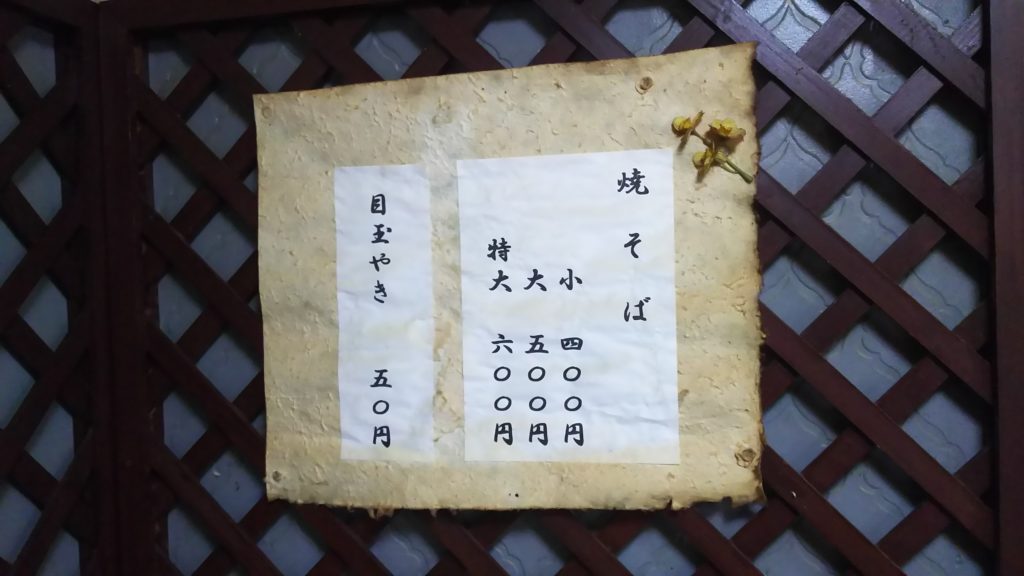 焼そば
小 四〇〇円
大 五〇〇円
特大 六〇〇円
目玉やき 五〇円